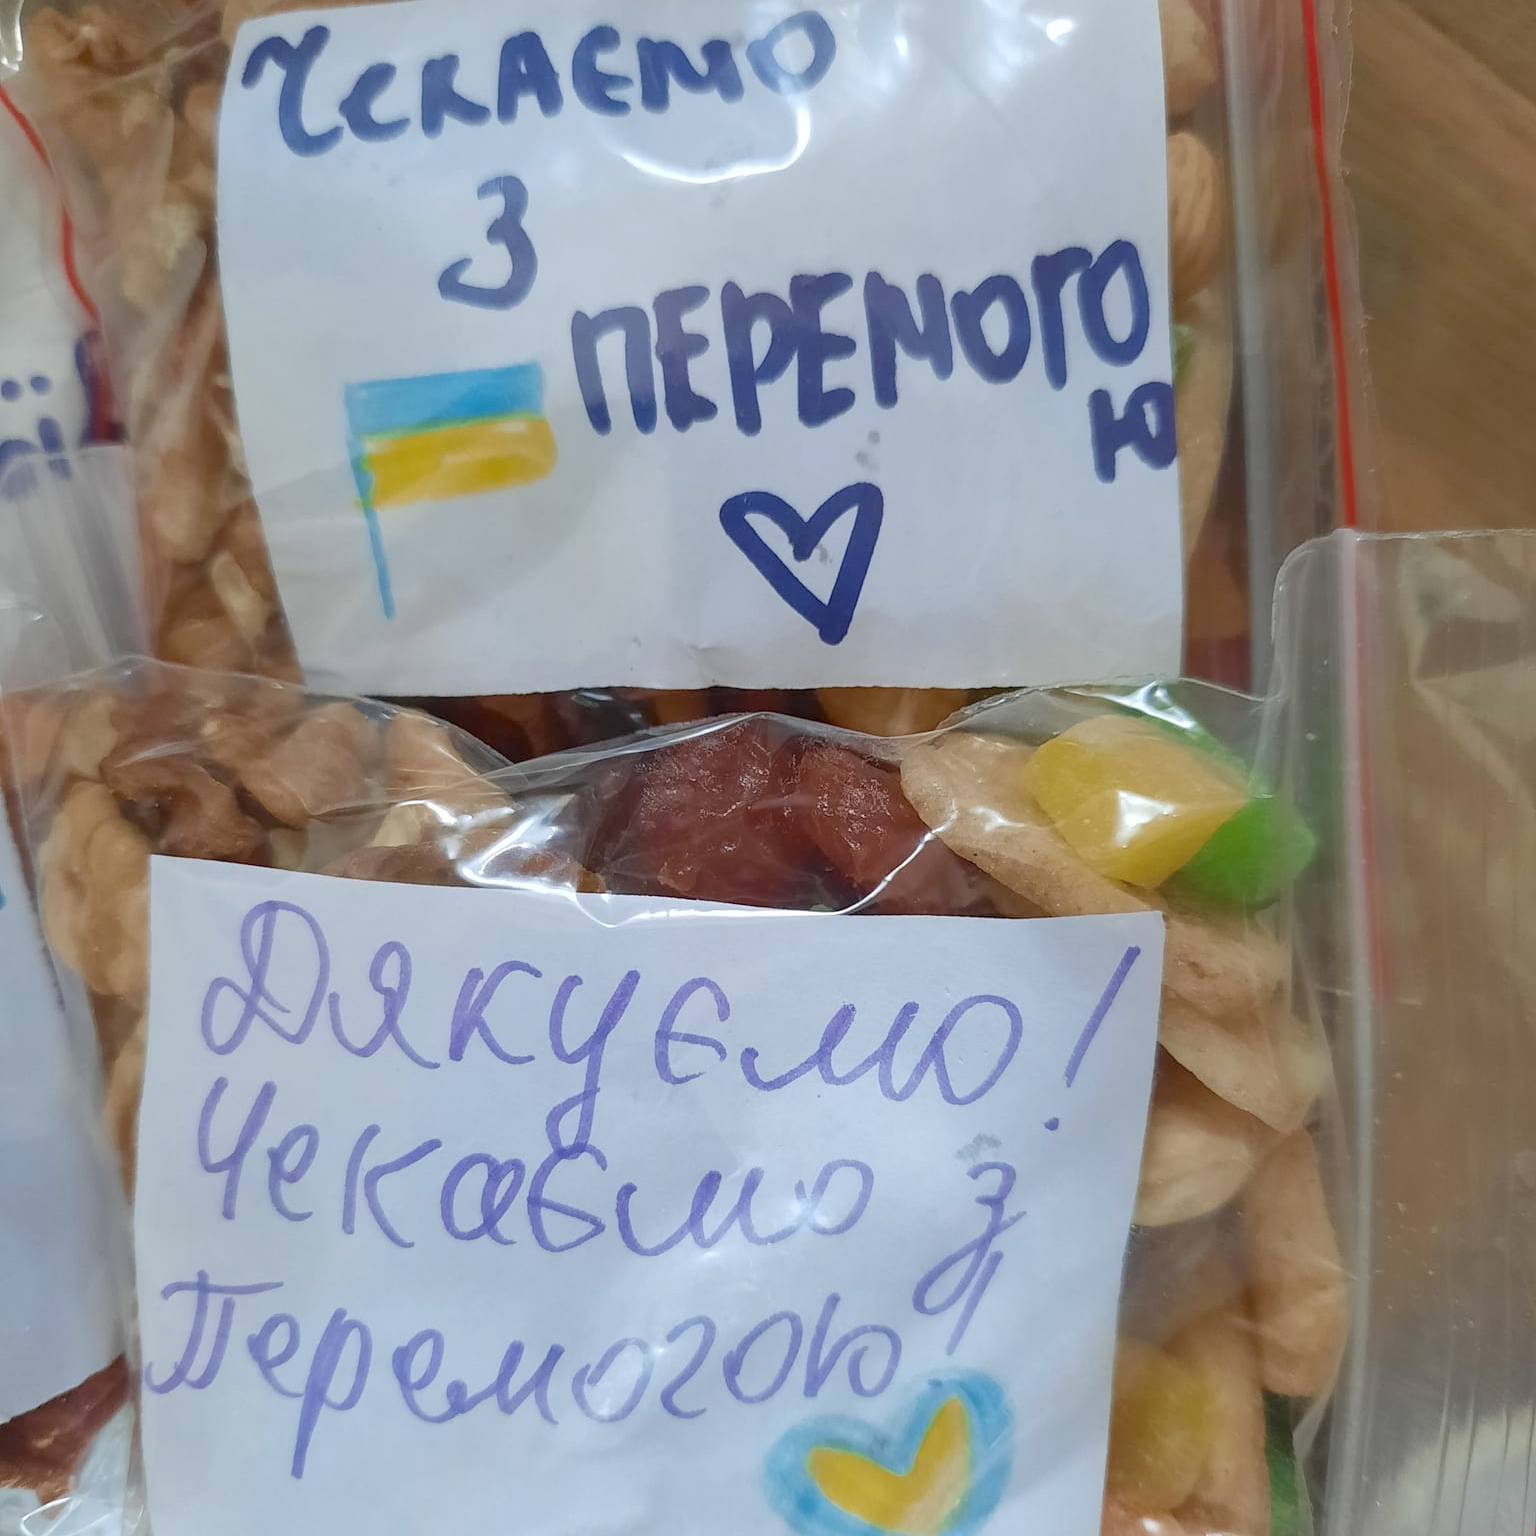 Чекаємо
З
ПЕРЕМОГО
Ю
Дякуємо!
Чекаємо з
Перемогою